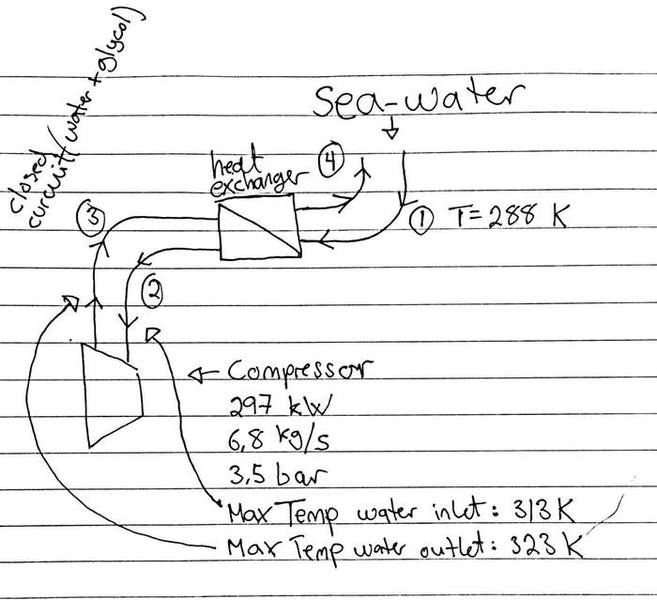 closed
curcuit (water + glycol)
Sea-water
heat
exchanger
4
3
1 T = 288 K
2
Compressor
297 kW
6,8 kg/s
3,5 bar
Max Temp water inlet: 313 K
Max Temp water outlet: 323 K